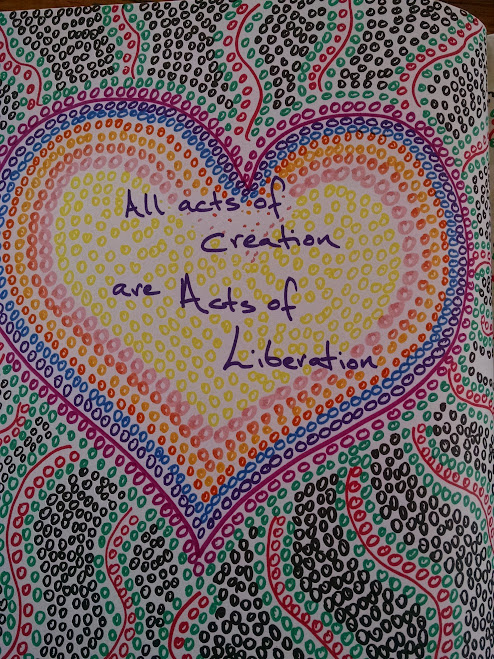 All acts of
creation
are Acts of
Liberation